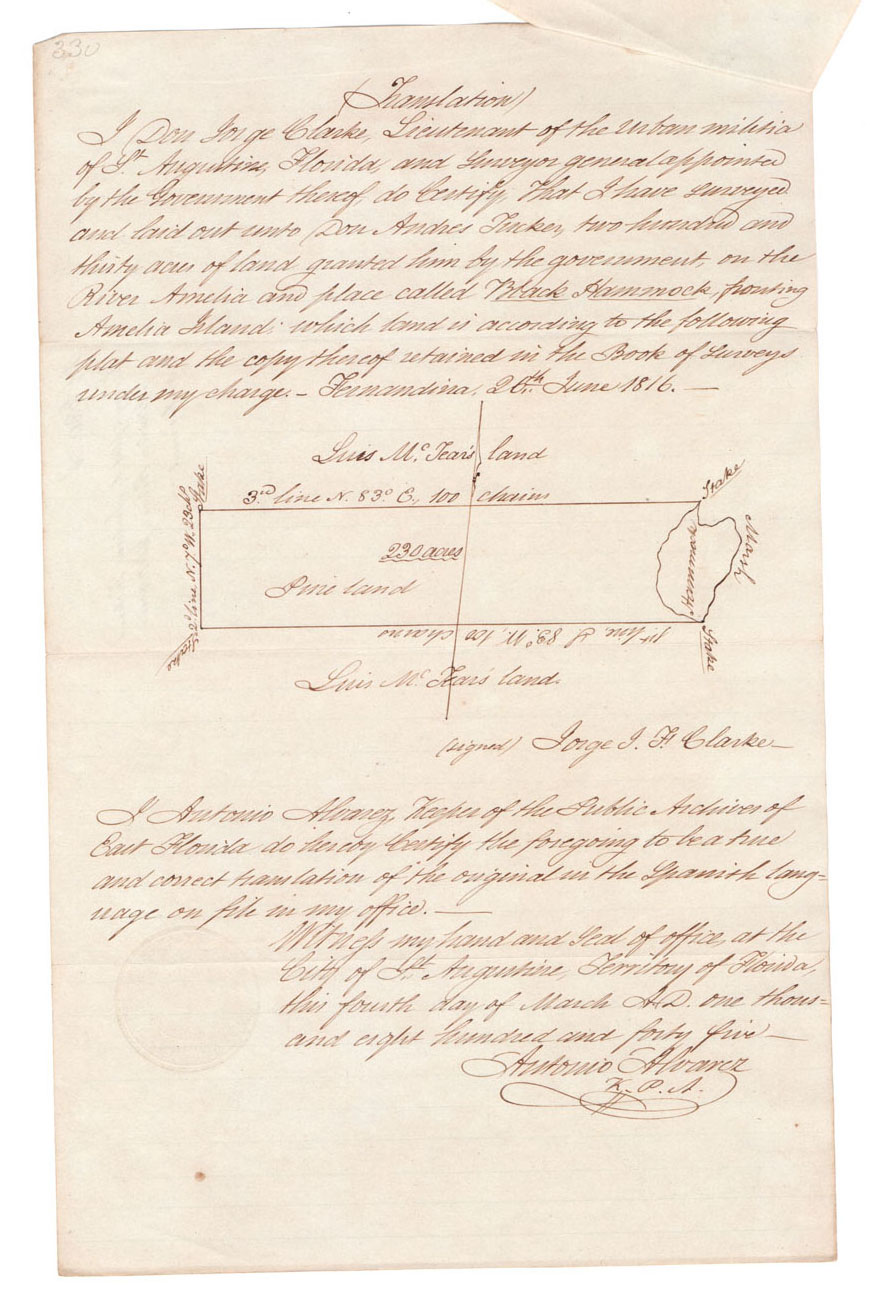 330
(Translation)
I Don Jorge Clarke, Lieutenant of the Urban militia
of St. Augustine, Florida, and Surveyor general appointed
by the Government thereof, do Certify, That I have surveyed
and laid out unto Don Andres Tucker, two hundred and
thirty acres of land granted him by the government, on the
River Amelia and place called Black Hammock, fronting
Amelia Island; which land is according to the following
plat and the copy thereof retained in the Book of Surveys
under my charge. – Fernandina, 20th June 1816. —
Luis Mc. Fear's land
3rd line N. 83° E., 100 chains
Stake
Stake
2d line N. 7° W. 23 ch.
230 acres
Pine land
Hammock
Marsh
1st line S. 83° W. 100 chains
Stake
Luis Mc. Fear's land.
(signed) Jorge J. F. Clarke —
I Antonio Alvarez, Keeper of the Public Archives of
East Florida do hereby Certify the foregoing to be a true
and correct translation of the original in the Spanish lang=
uage on file in my office. —
Witness my hand and Seal of office, at the
City of St. Augustine, Territory of Florida,
this fourth day of March A.D. one thous=
and eight hundred and forty five —
Antonio Alvarez
K. P. A.